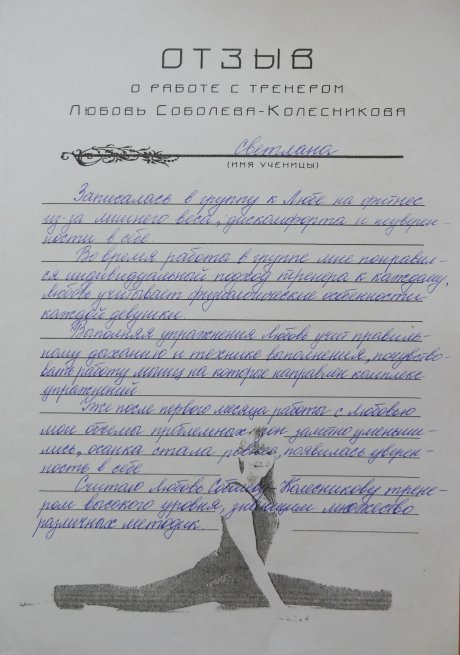 ОТЗЫВ
О РАБОТЕ С ТРЕНЕРОМ
ЛЮБОВЬ СОБОЛЕВА-КОЛЕСНИКОВА
Светлана
(ИМЯ УЧЕНИЦЫ)
Записалась в группу к Любе на фитнес
из за лишнего веса, дискомфорта и неуверен-
ности в себе
Во время работы в группе мне понрави-
ся индивидуальный подход тренера к каждому,
Любовь учитывает физиологические особенности
каждой девушки.
Выполняя упражнения Любовь учит правиль-
ному дыханию и технике выполнения, почувство-
вать работу мышц на которое направлен комплекс
упражнений
Уже после первого месяца работы с Любовью
мои объемы проблемных зон заметно уменьши-
лись, осанка стала ровнее, появилась уверен-
ность в себе
Считаю Любовь Соболеву-Колесникову трене-
ром высокого уровня, знающим множество
различных методик.